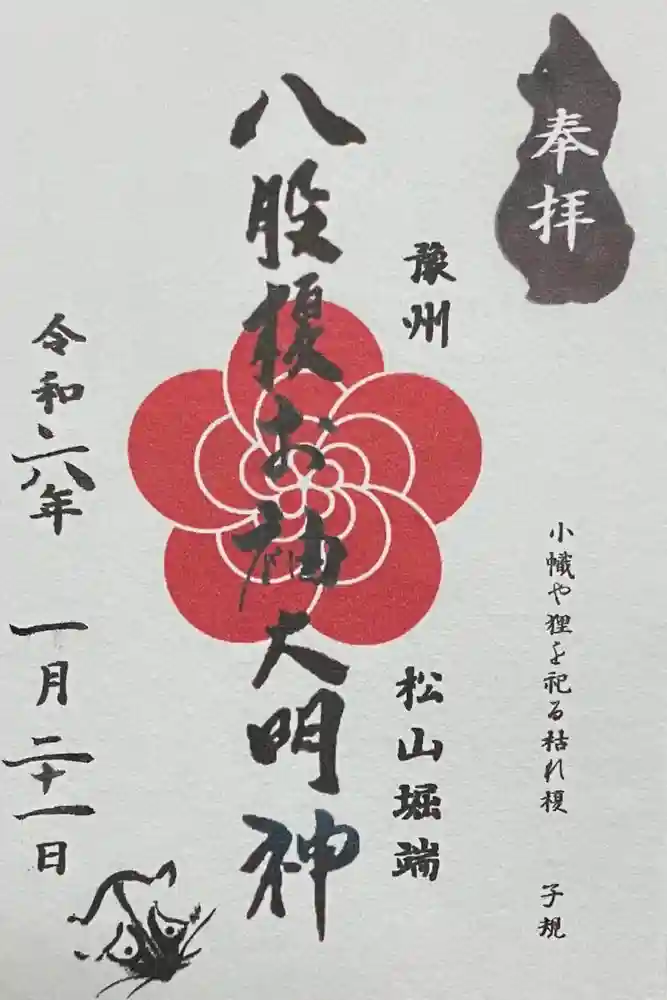 奉拝
小幟や狸を祀る枯れ榎
子規
豫州
松山堀端
八股榎お袖大明神
令和六年
一月二十一日